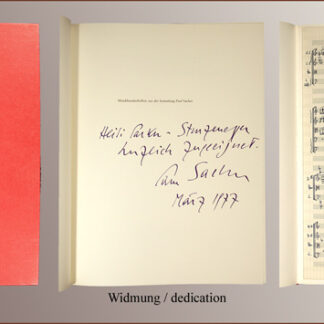 Musikhandschriften aus der Sammlung Paul Sacher
Heidi Parker - 
herzlich zugeeignet.
Paul Sacher
März 1977
Widmung / dedication